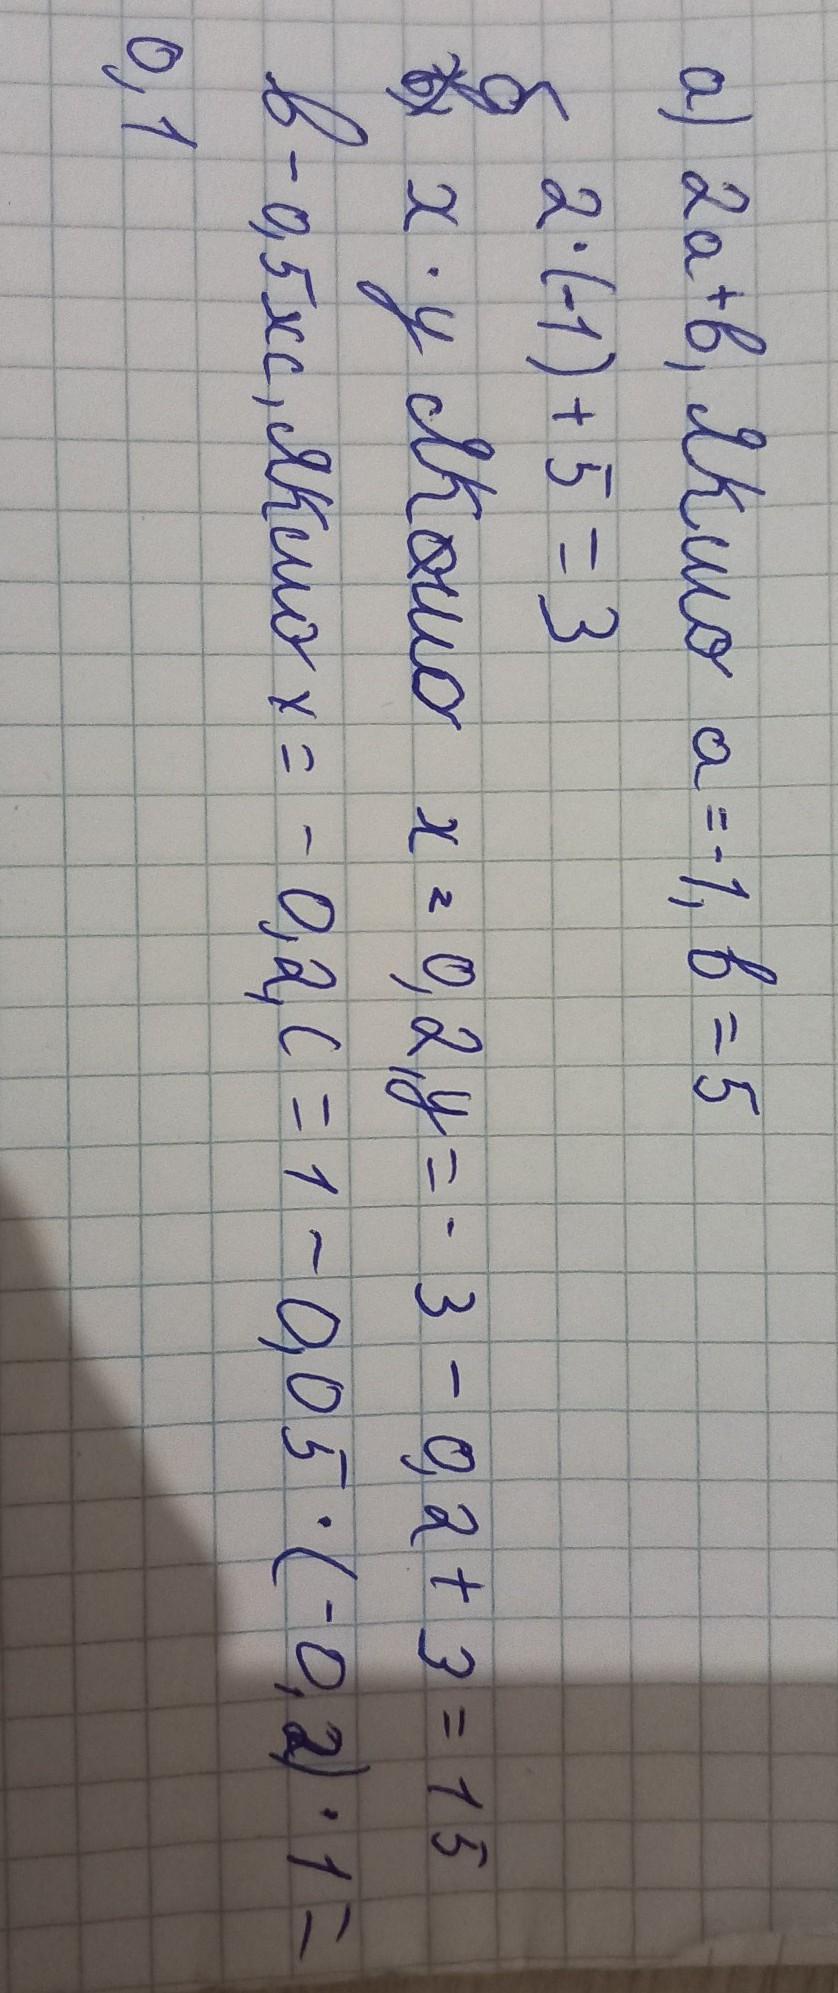 а) 2a+b, Якщо a=-1, b=5
2·(-1)+5=3
б x·y Якщо x=0,2, y=-3-0,2+3=15
в-0,5xc, Якщо x=-0,2, c=1-0,05·(-0,2)·1=
0,1